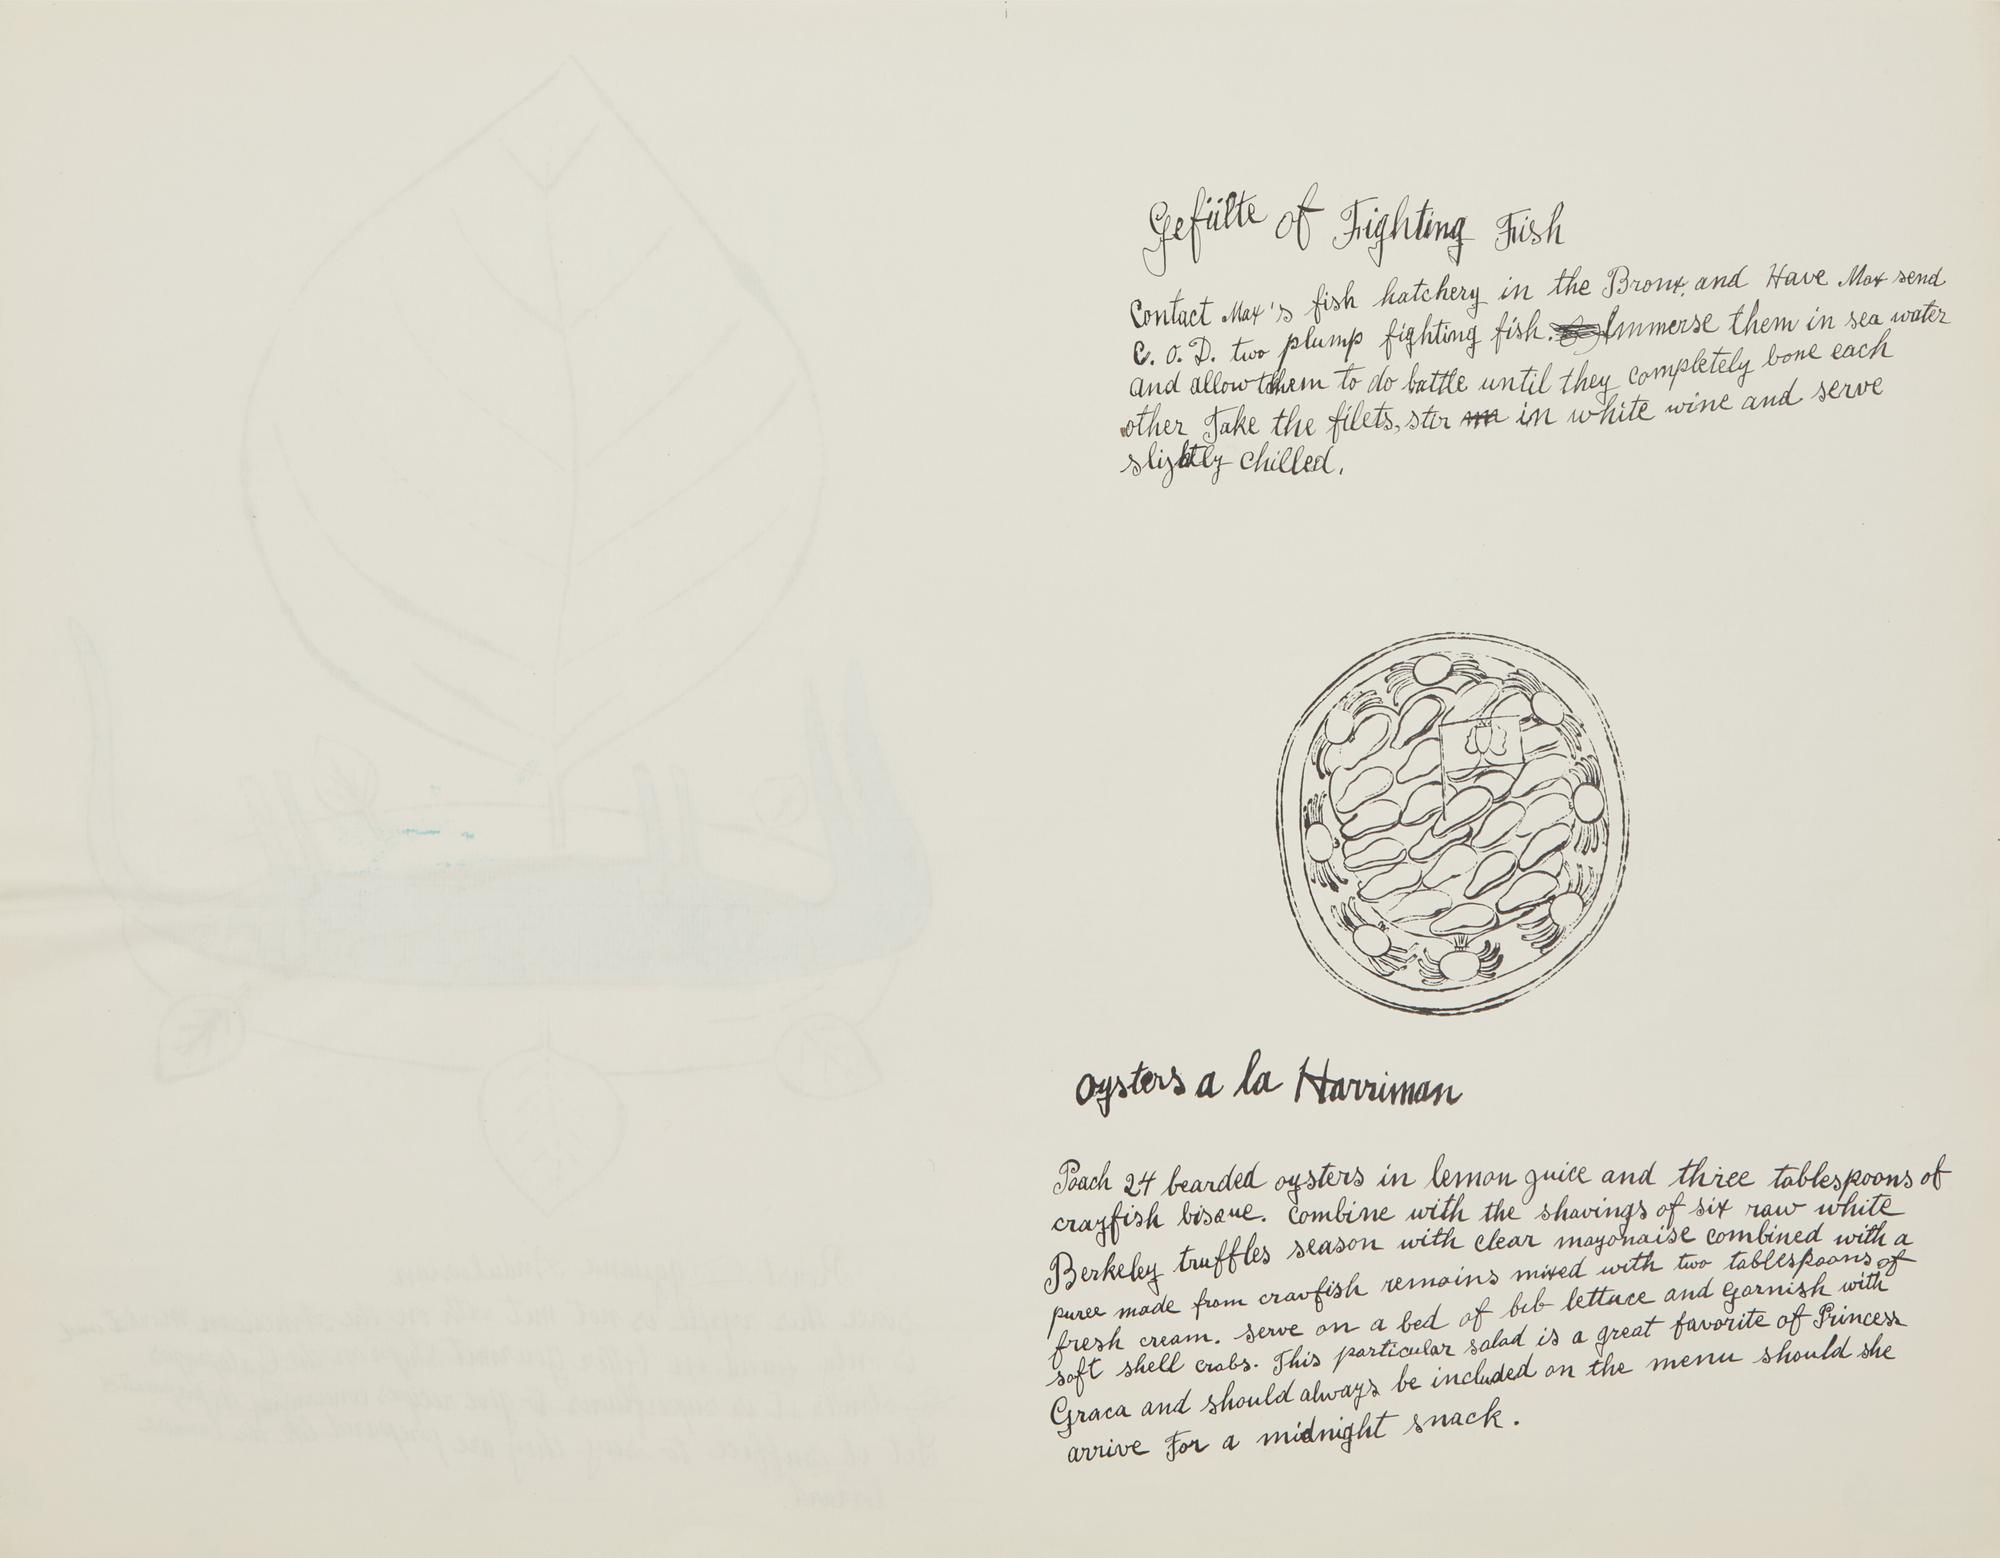 Gefülte of Fighting Fish
Contact Max's fish hatchery in the Bronx, and Have Max send
C. O. D. two plump fighting fish. Immerse them in sea water
and allow them to do battle until they completely bone each
other Take the filets, stir in white wine and serve
slightly chilled.
Oysters a la Harriman
Poach 24 bearded oysters in lemon juice and three tablespoons of
crayfish bisque. Combine with the shavings of six raw white
Berkeley truffles season with clear mayonaise combined with a
puree made from crayfish remains mixed with two tablespoons of
fresh cream. serve on a bed of bib lettuce and garnish with
soft shell crabs. This particular salad is a great favorite of Princess
Graca and should always be included on the menu should she
arrive For a midnight snack.